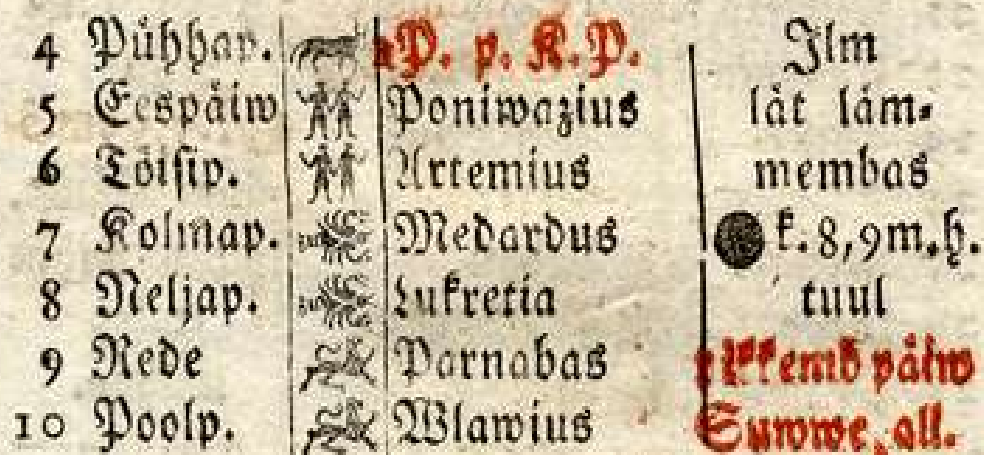 4 Pühhap. P. p. K. P. Ilm
5 Eespäiw Poniwazius lät läm-
6 Töisip. Artemius membas
7 Kolmap. Medardus k. 8, 9 m. h.
8 Neljap. Lukretia tuul
9 Rede Parnabas päiw
10 Poolp. Wlawius Suwwe, all.